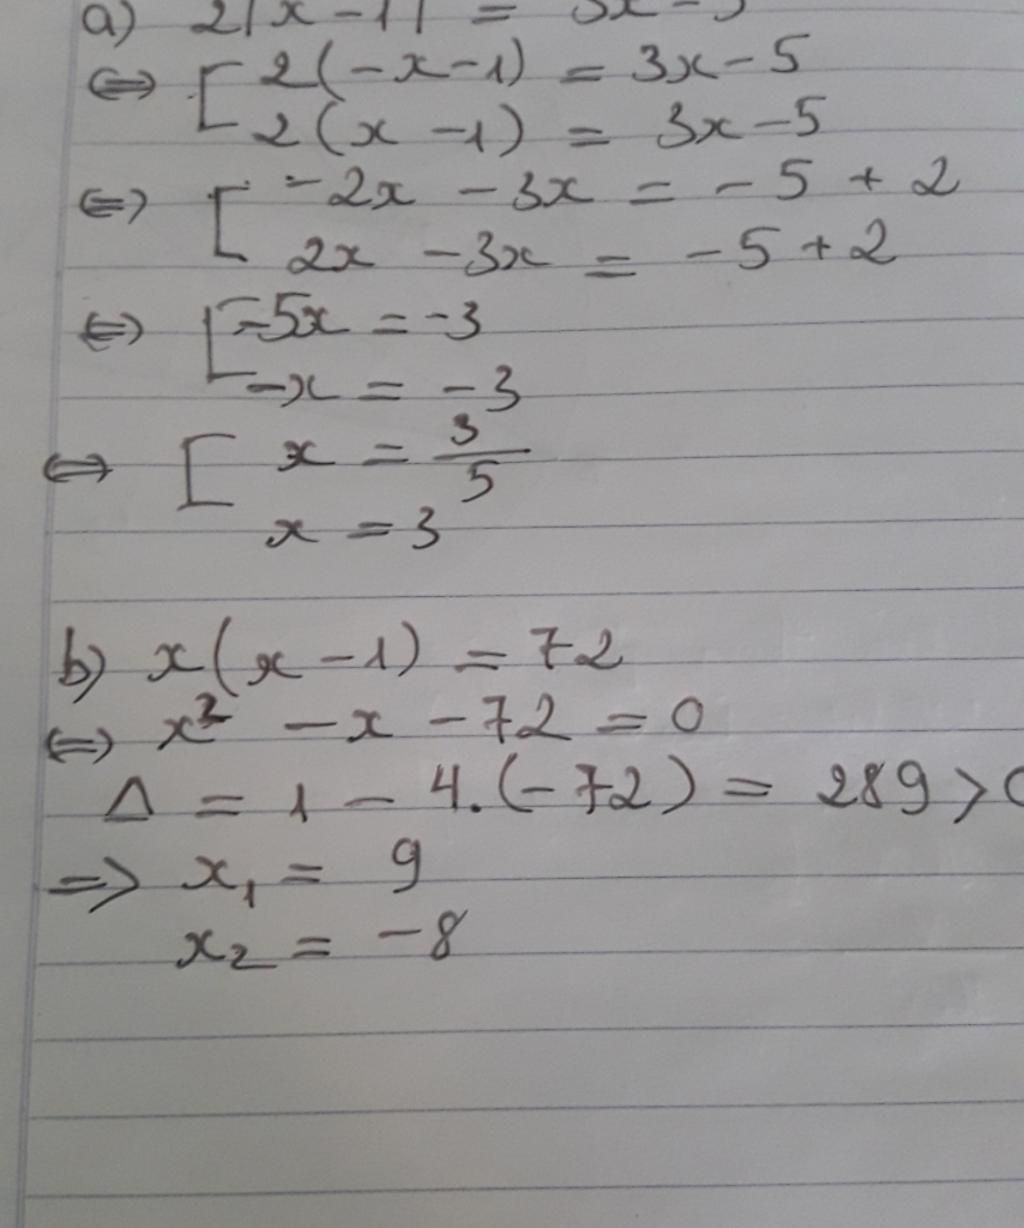 a) 2|x - 1| = 3x - 5
⇔ [ 2(-x-1) = 3x - 5
2(x - 1) = 3x - 5
⇔ [ -2x - 3x = -5 + 2
2x - 3x = -5 + 2
⇔ [ -5x = -3
-x = -3
⇔ [ x = 3/5
x = 3
b) x(x - 1) = 72
⇔ x² - x - 72 = 0
Δ = 1 - 4.(-72) = 289 > 0
=> x₁ = 9
x₂ = -8